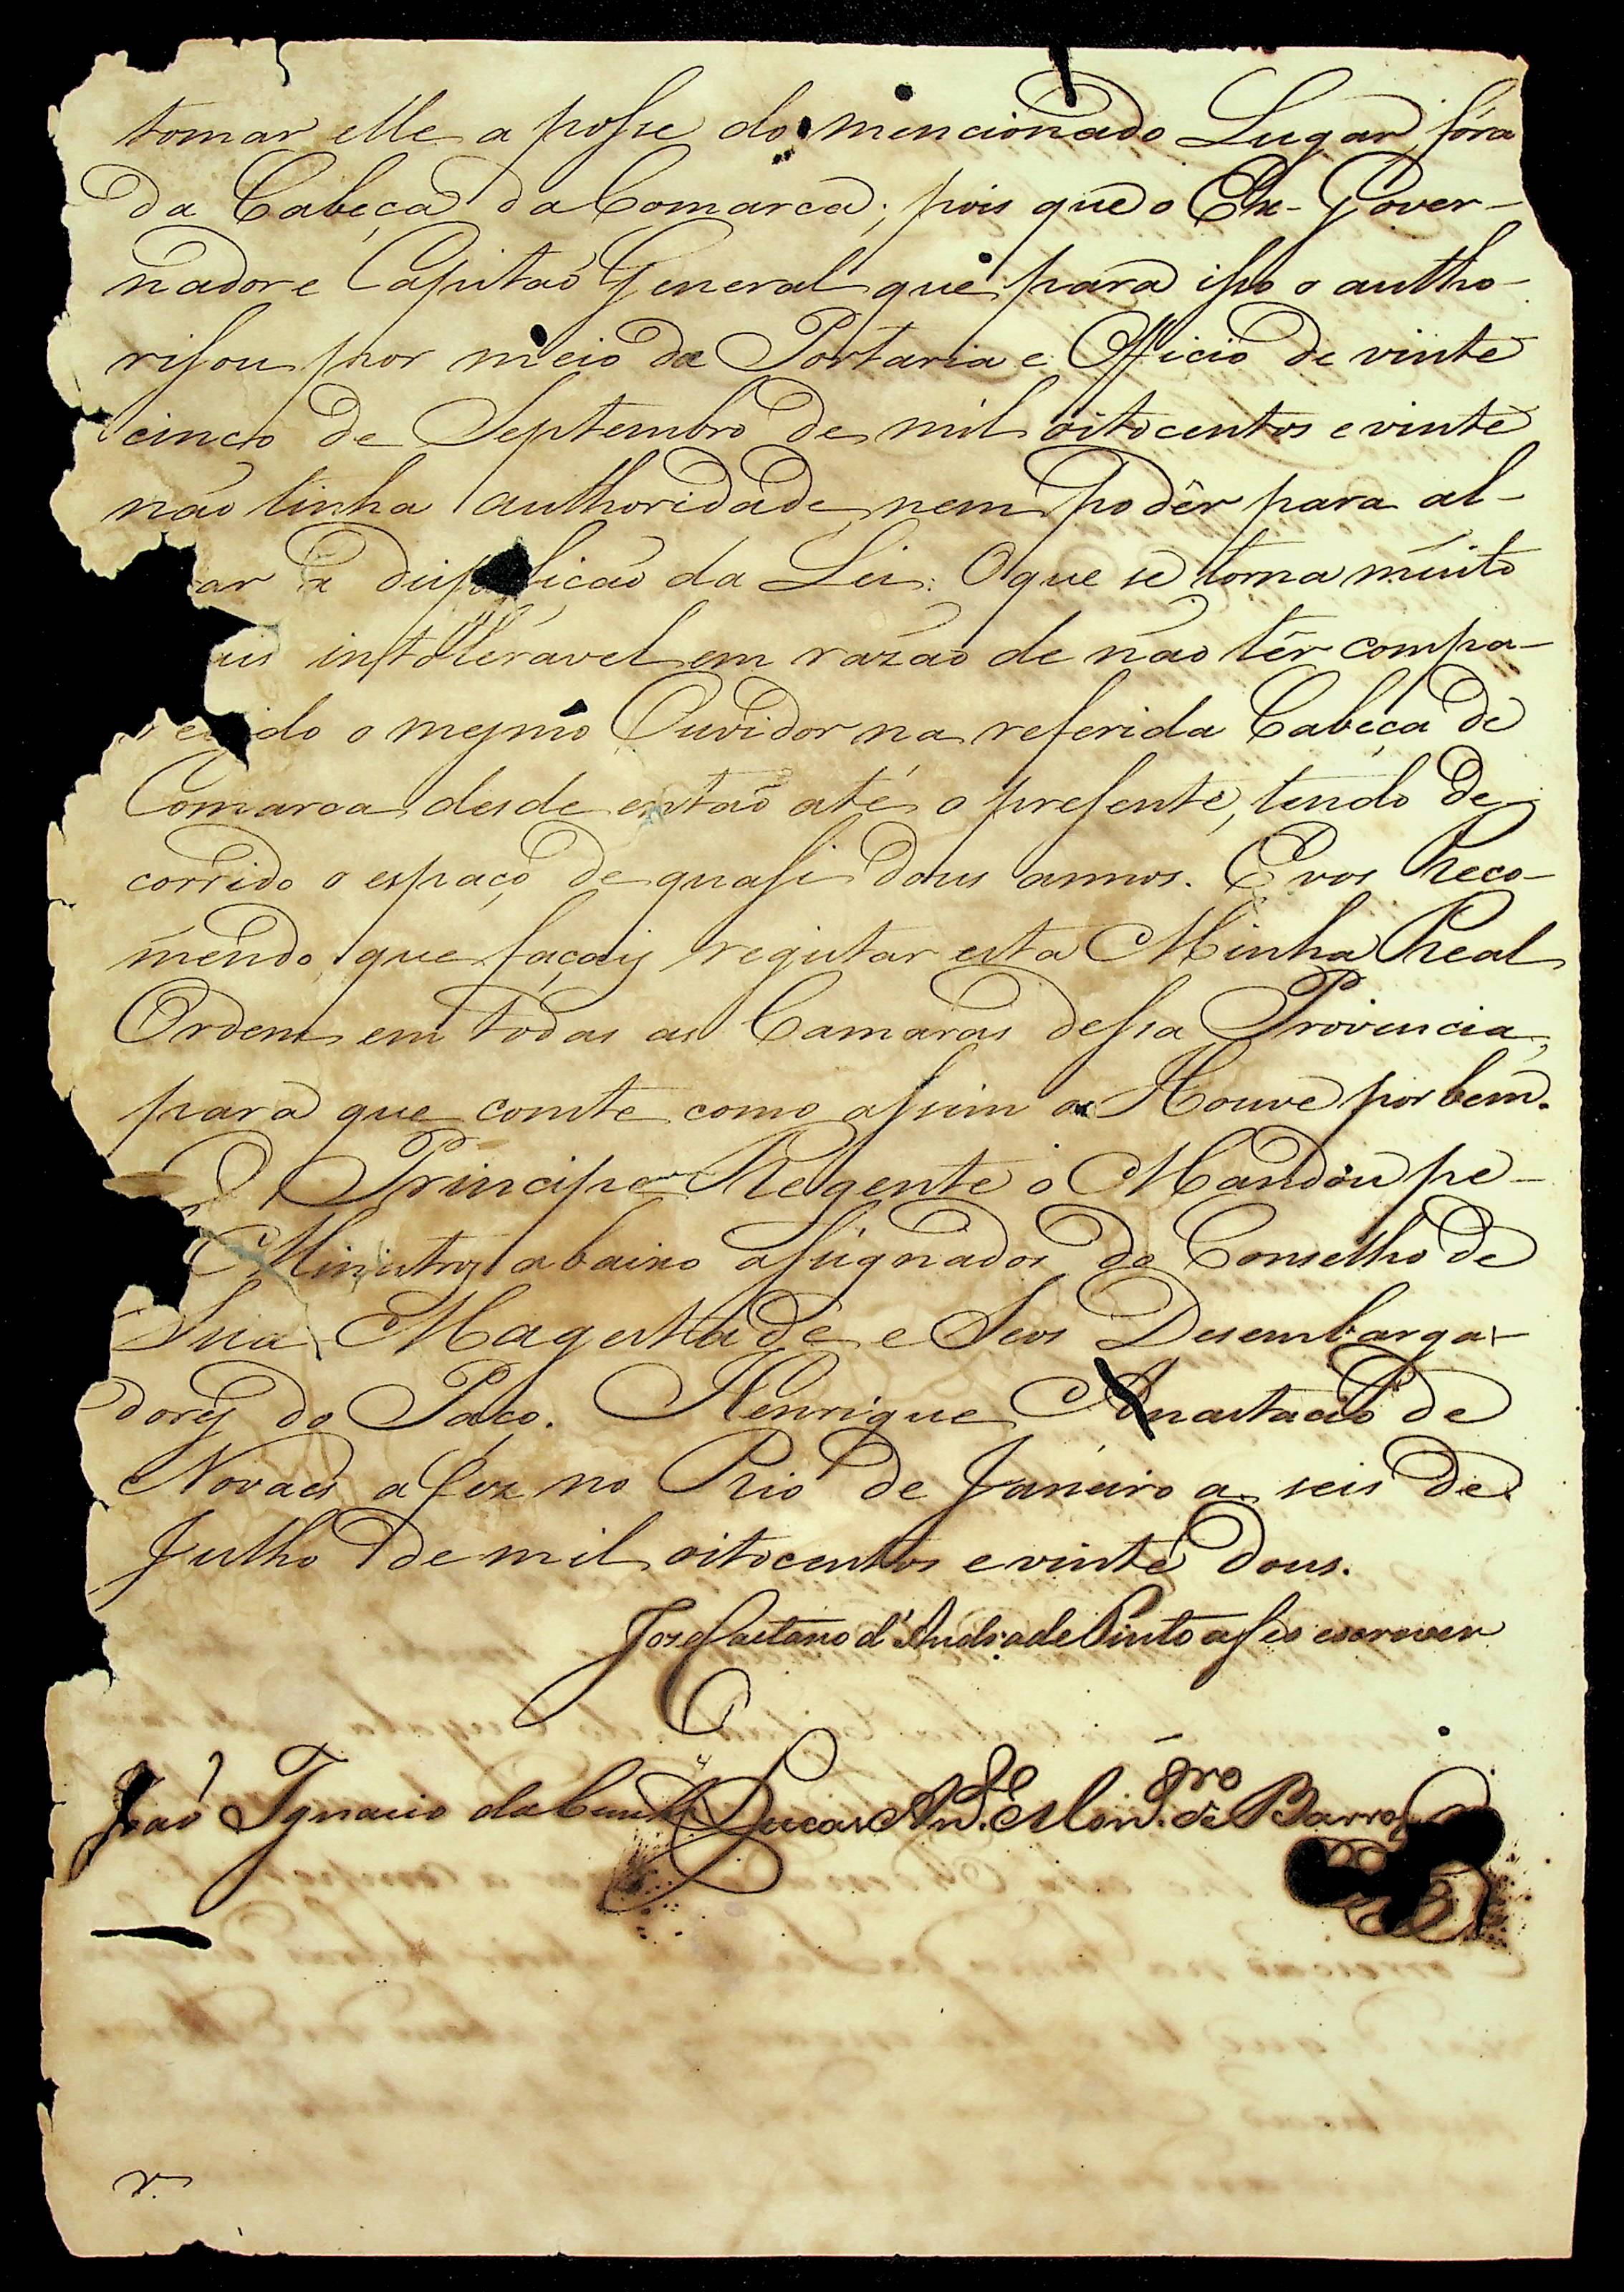 tomar elle a posse do mencionado Lugar, fóra
da Cabeça da Comarca; pois que o Ex-Gover-
nador e Capitaõ General que para isso o autho-
risou por meio da Portaria e Officio de vinte
cinco de Septembro de mil oitocentos e vinte
não tinha authoridade, nem podêr para al-
ar a disp icaõ da Lei: O que se torna muito
ais intolleravel em razaõ de naõ têr compa-
recido o mesmo Ouvidor na referida Cabeça de
Comarca desde entaõ até o presente, tendo de
corrido o espaço de quasi dous annos. E vos Reco-
mendo que façais registar esta Minha Real
Ordem em todas as Camaras dessa Provincia,
para que conste como assim o Houve por bem.
O Principe Regente o Mandou pe-
Ministros abaixo assignados do Conselho de
Sua Magestade e Seos Desembarga-
dores do Paço. Henrique Anastacio de
Novaes a fez no Rio de Janeiro a seis de
Julho de mil oitocentos e vinte dous.
Joze Caetano d'Andrade Pinto a fes escrever
Joaõ Ignacio da Cunha Lucas An.to Mon.tro de Barros
r.